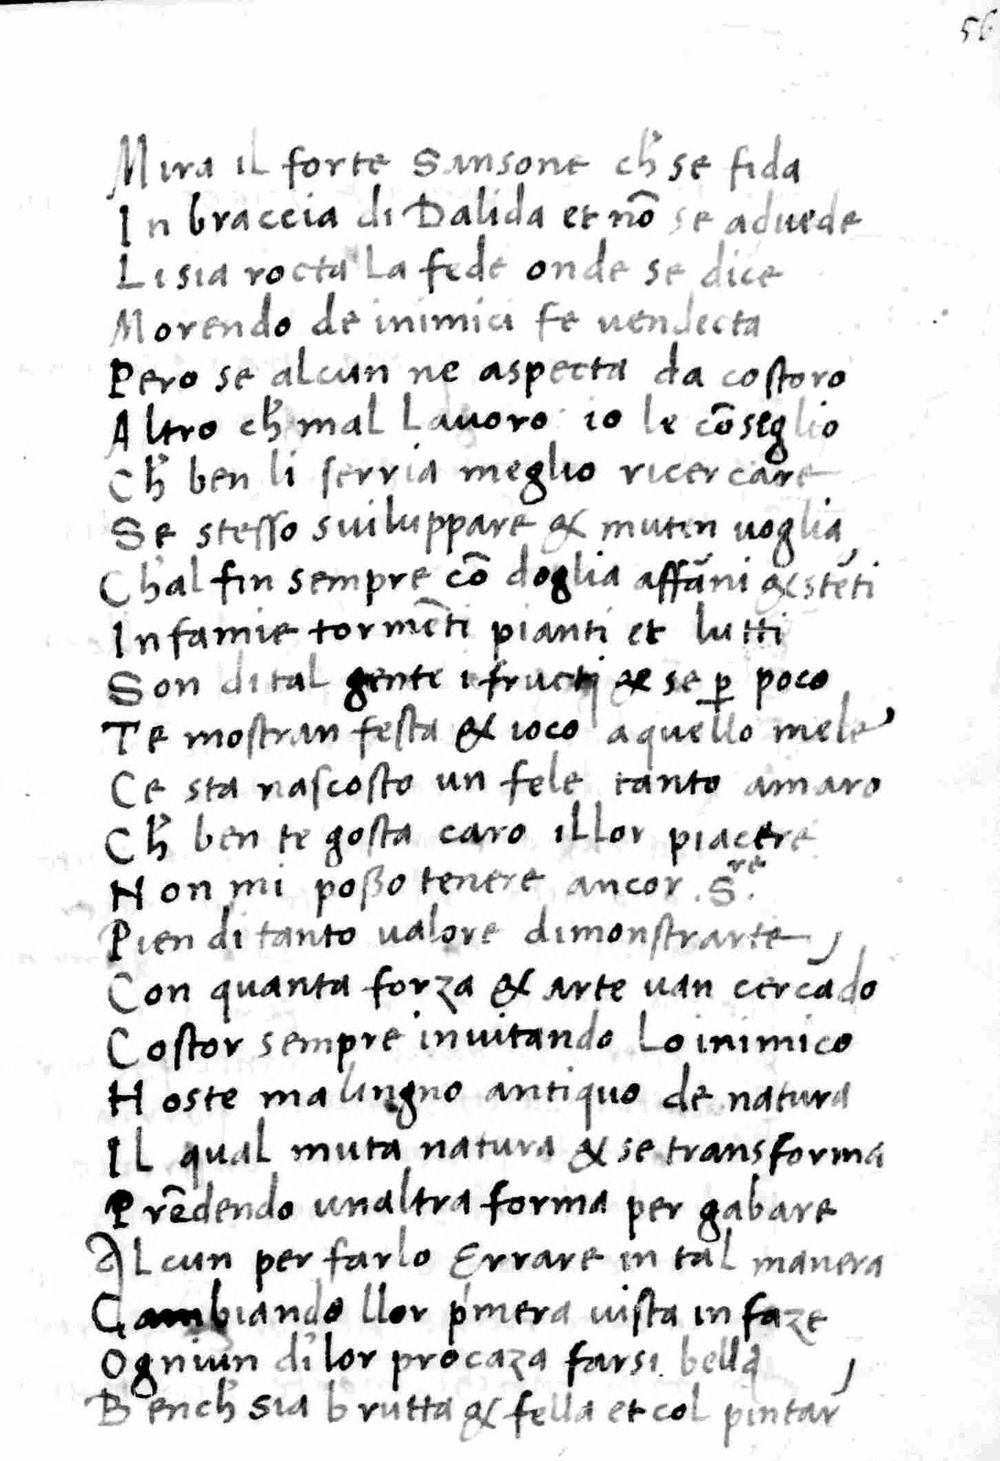 56
Mira il forte Sansone ch̓ se fida
In braccia di Dalida et nõ se aduede
Li sia rocta la fede onde se dice
Morendo de inimici fe uendecta
Pero se alcun ne aspecta da costoro
Altro ch̓ mal lauoro io le cõseglio
Ch̓ ben li serria meglio ricercare
Se stesso suiluppare & mutin uoglia,
Ch̓al fin sempre cõ doglia affãni & stẽti
Infamie tormẽti pianti et lutti
Son di tal gente i fructi & se ꝑ poco
Te mostran festa & ioco aquello mele
Ce sta nascosto un fele tanto amaro
Ch̓ ben te gosta caro il lor piacere
Non mi poßo tenere ancor .S.re
Pien di tanto ualore dimonstrarte
Con quanta forza & arte uan cercãdo
Costor sempre inuitando lo inimico
Hoste malingno antiquo de natura
Il qual muta natura & se transforma
Prẽdendo unaltra forma per gabare
Alcun per farlo errare in tal manera
Cambiando llor p̓mera uista in faze
Ogniun di lor procaza farsi bella,
Bench̓ sia brutta & fella et col pintar